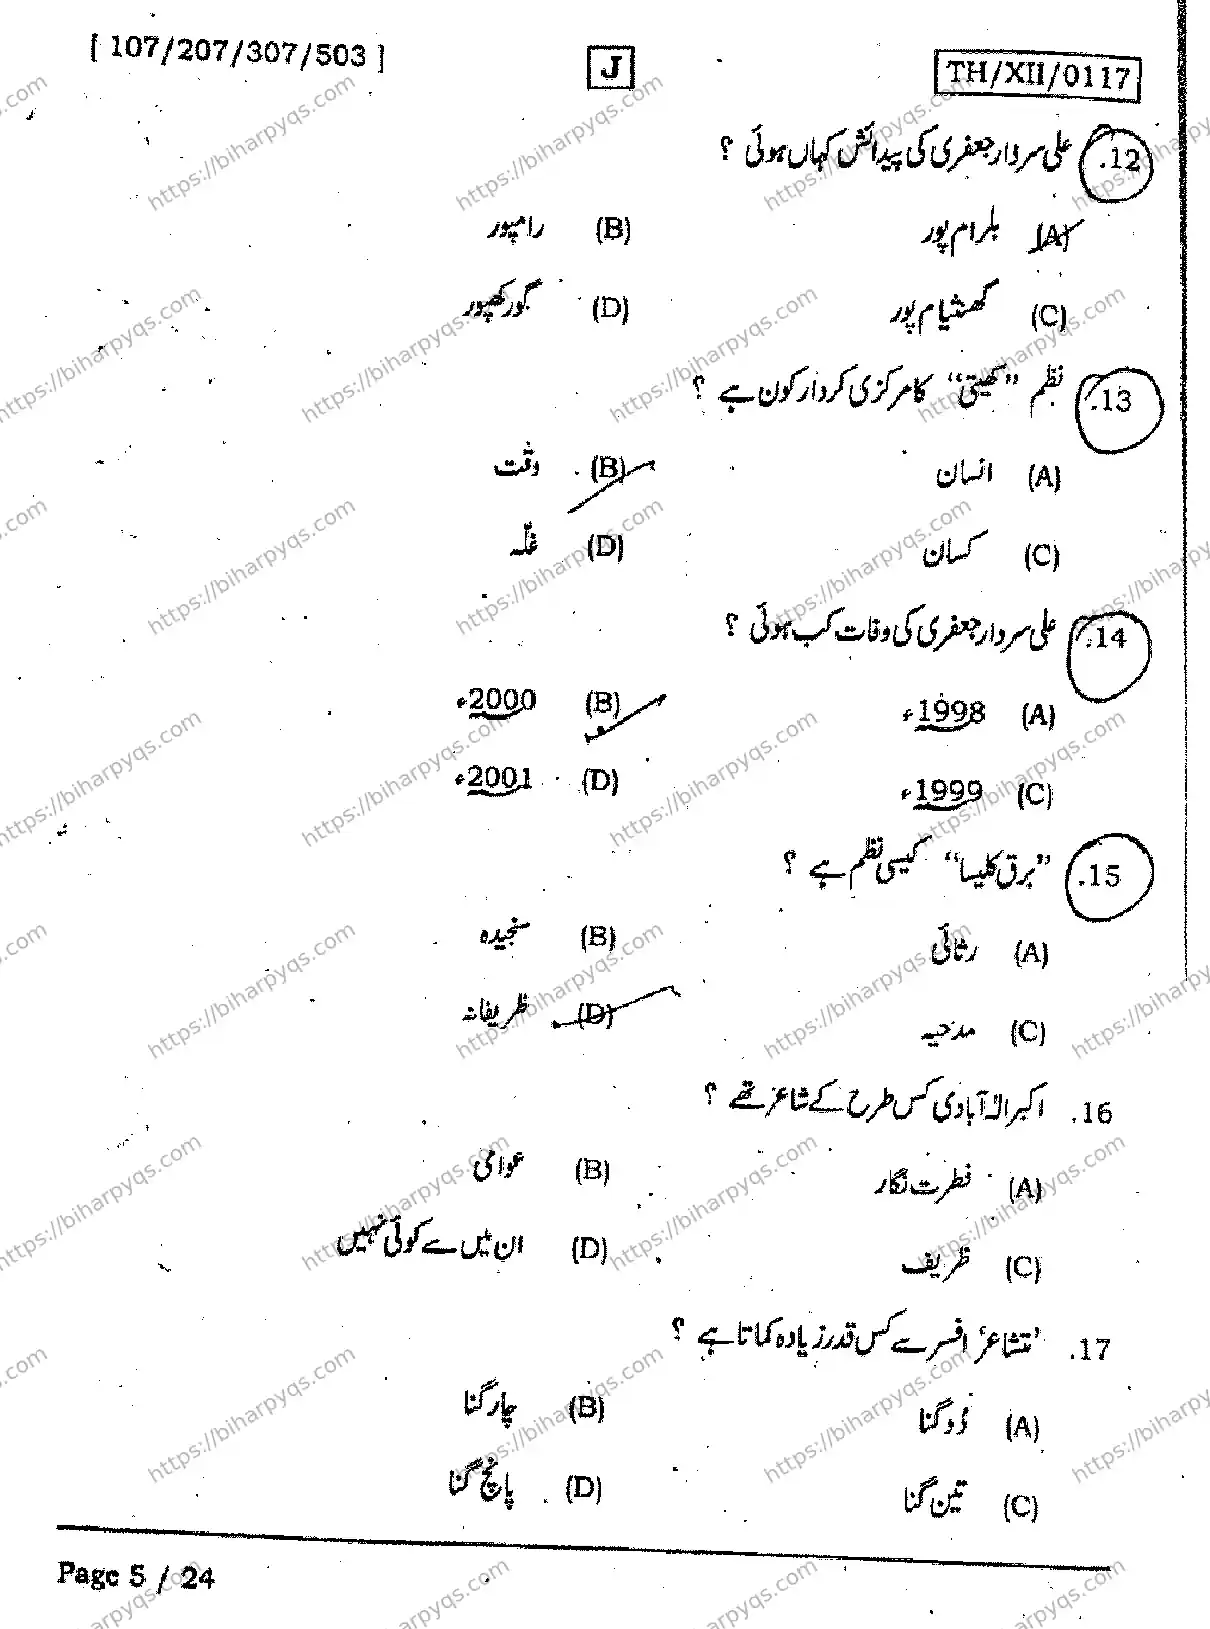 [ 107/207/307/503 ]
J
TH/XII/0117
12. علی سردار جعفری کی پیدائش کہاں ہوئی ؟
(A) بلرام پور (B) رامپور
(C) گھنشیام پور (D) گورکھپور
13. نظم ”کھیتی“ کا مرکزی کردار کون ہے ؟
(A) انسان (B) وقت
(C) کسان (D) غلّہ
14. علی سردار جعفری کی وفات کب ہوئی ؟
(A) 1998ء (B) 2000ء
(C) 1999ء (D) 2001ء
15. ”برق کلیسا“ کیسی نظم ہے ؟
(A) رثائی (B) سنجیدہ
(C) مدحیہ (D) ظریفانہ
16. اکبر الہ آبادی کس طرح کے شاعر تھے ؟
(A) فطرت نگار (B) عوامی
(C) ظریف (D) ان میں سے کوئی نہیں
17. ’تشاعر‘ افسر سے کس قدر زیادہ کماتا ہے ؟
(A) دو گنا (B) چار گنا
(C) تین گنا (D) پانچ گنا
Page 5 / 24
https://biharpyqs.com